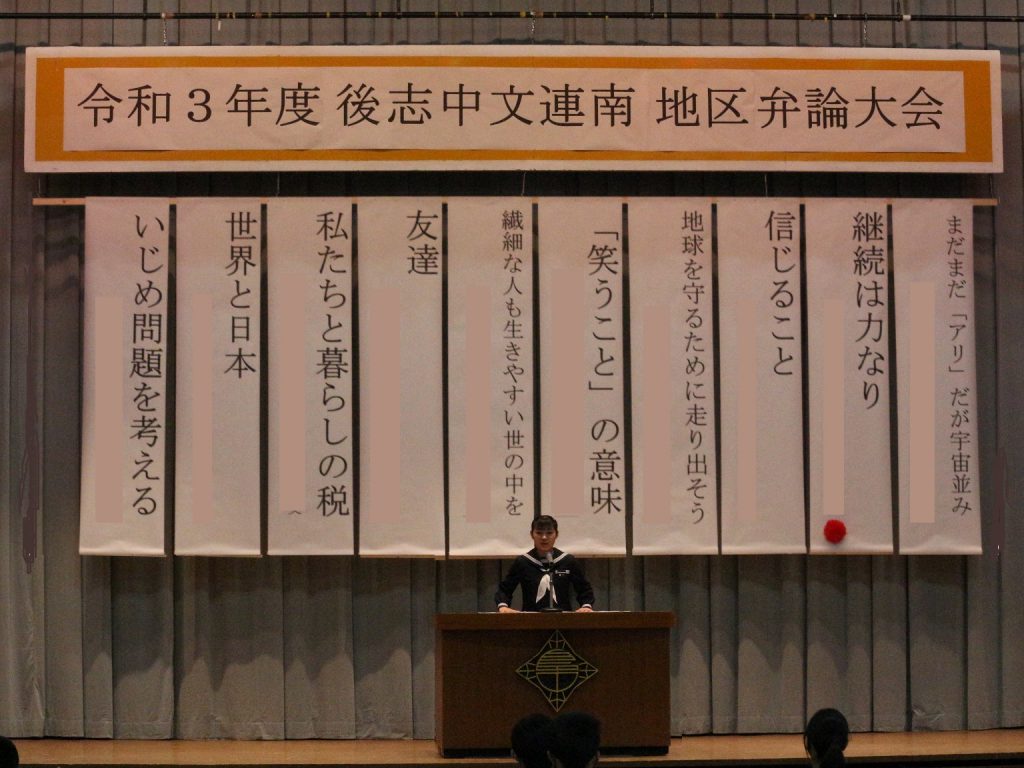 令和３年度 後志中文連南 地区弁論大会
まだまだ「アリ」だが宇宙並み
継続は力なり
信じること
地球を守るために走り出そう
「笑うこと」の意味
繊細な人も生きやすい世の中を
友達
私たちと暮らしの税
世界と日本
いじめ問題を考える